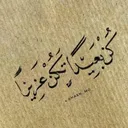 كُنْ بَعِيدًا تَكُنْ عَزِيزًا